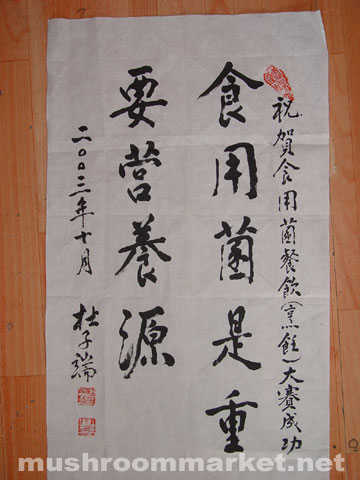 祝贺食用菌餐飲(烹飪)大赛成功
食用菌是重
要营养源
二〇〇三年十月
杜子端
mushroommarket.net